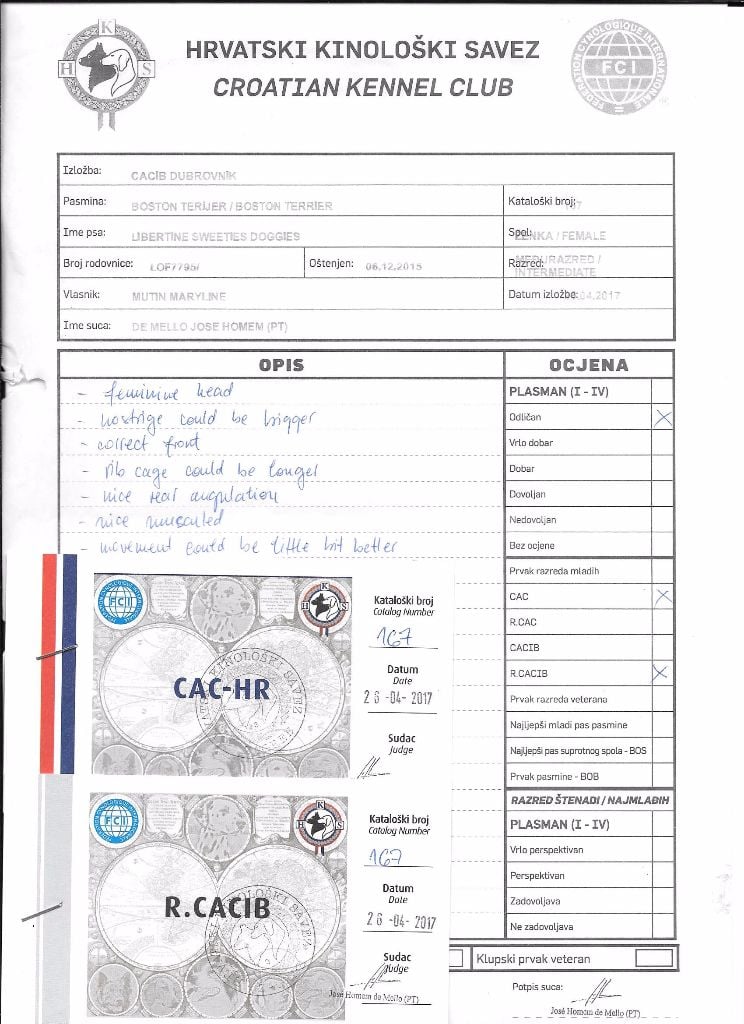 HRVATSKI KINOLOŠKI SAVEZ
CROATIAN KENNEL CLUB
H K S
FEDERATION CYNOLOGIQUE INTERNATIONALE
FCI
Izložba: CACIB DUBROVNIK
Pasmina: BOSTON TERIJER / BOSTON TERRIER
Kataloški broj:
Ime psa: LIBERTINE SWEETIES DOGGIES
Spol: ŽENKA / FEMALE
Broj rodovnice: LOF7795/
Oštenjen: 06.12.2015
Razred: MEĐURAZRED /
INTERMEDIATE
Vlasnik: MUTIN MARYLINE
Datum izložbe: 04.2017
Ime suca: DE MELLO JOSE HOMEM (PT)
OPIS
- feminine head
- nostrige could be bigger
- correct front
- rib cage could be longer
- nice rear angulation
- nice muscated
- movement could be little bit better
OCJENA
PLASMAN (I - IV)
Odličan X
Vrlo dobar
Dobar
Dovoljan
Nedovoljan
Bez ocjene
Prvak razreda mladih
CAC X
R.CAC
CACIB
R.CACIB X
Prvak razreda veterana
Najljepši mladi pas pasmine
Najljepši pas suprotnog spola - BOS
Prvak pasmine - BOB
RAZRED ŠTENADI / NAJMLAĐIH
PLASMAN (I - IV)
Vrlo perspektivan
Perspektivan
Zadovoljava
Ne zadovoljava
Klupski prvak veteran
Potpis suca:
José Homem de Mello (PT)
FCI
H K S
CAC-HR
Kataloški broj
Catalog Number
167
Datum
Date
26-04-2017
Sudac
Judge
FCI
H K S
R.CACIB
Kataloški broj
Catalog Number
167
Datum
Date
26-04-2017
Sudac
Judge
José Homem de Mello (PT)